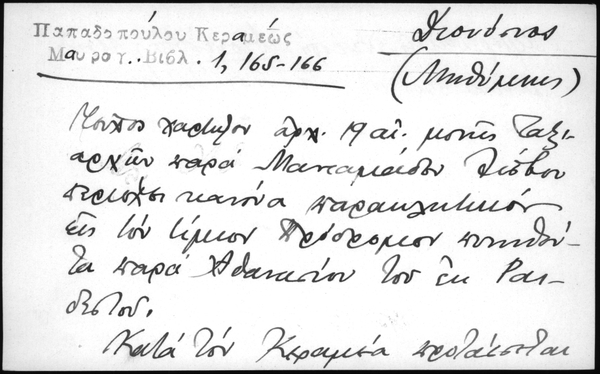 Παπαδοπούλου Κεραμέως
Μαυρογ. Βιβλ. 1, 165-166
Διονύσιος
(Μηθύμνης)
χαρτηῶον ἀρχ. 19 αἰ. μονῆς Ταξι-
αρχῶν παρὰ Μανταμάδον Λέσβου
περιέχει κανόνα παρακλητικὸν
εἰς τὸν τίμιον Πρόδρομον ποιηθέν-
τα παρὰ Ἀθανασίου τοῦ ἐκ Ραι-
δεστοῦ.
Κατὰ τὸν Κεραμέα προτάσσεται